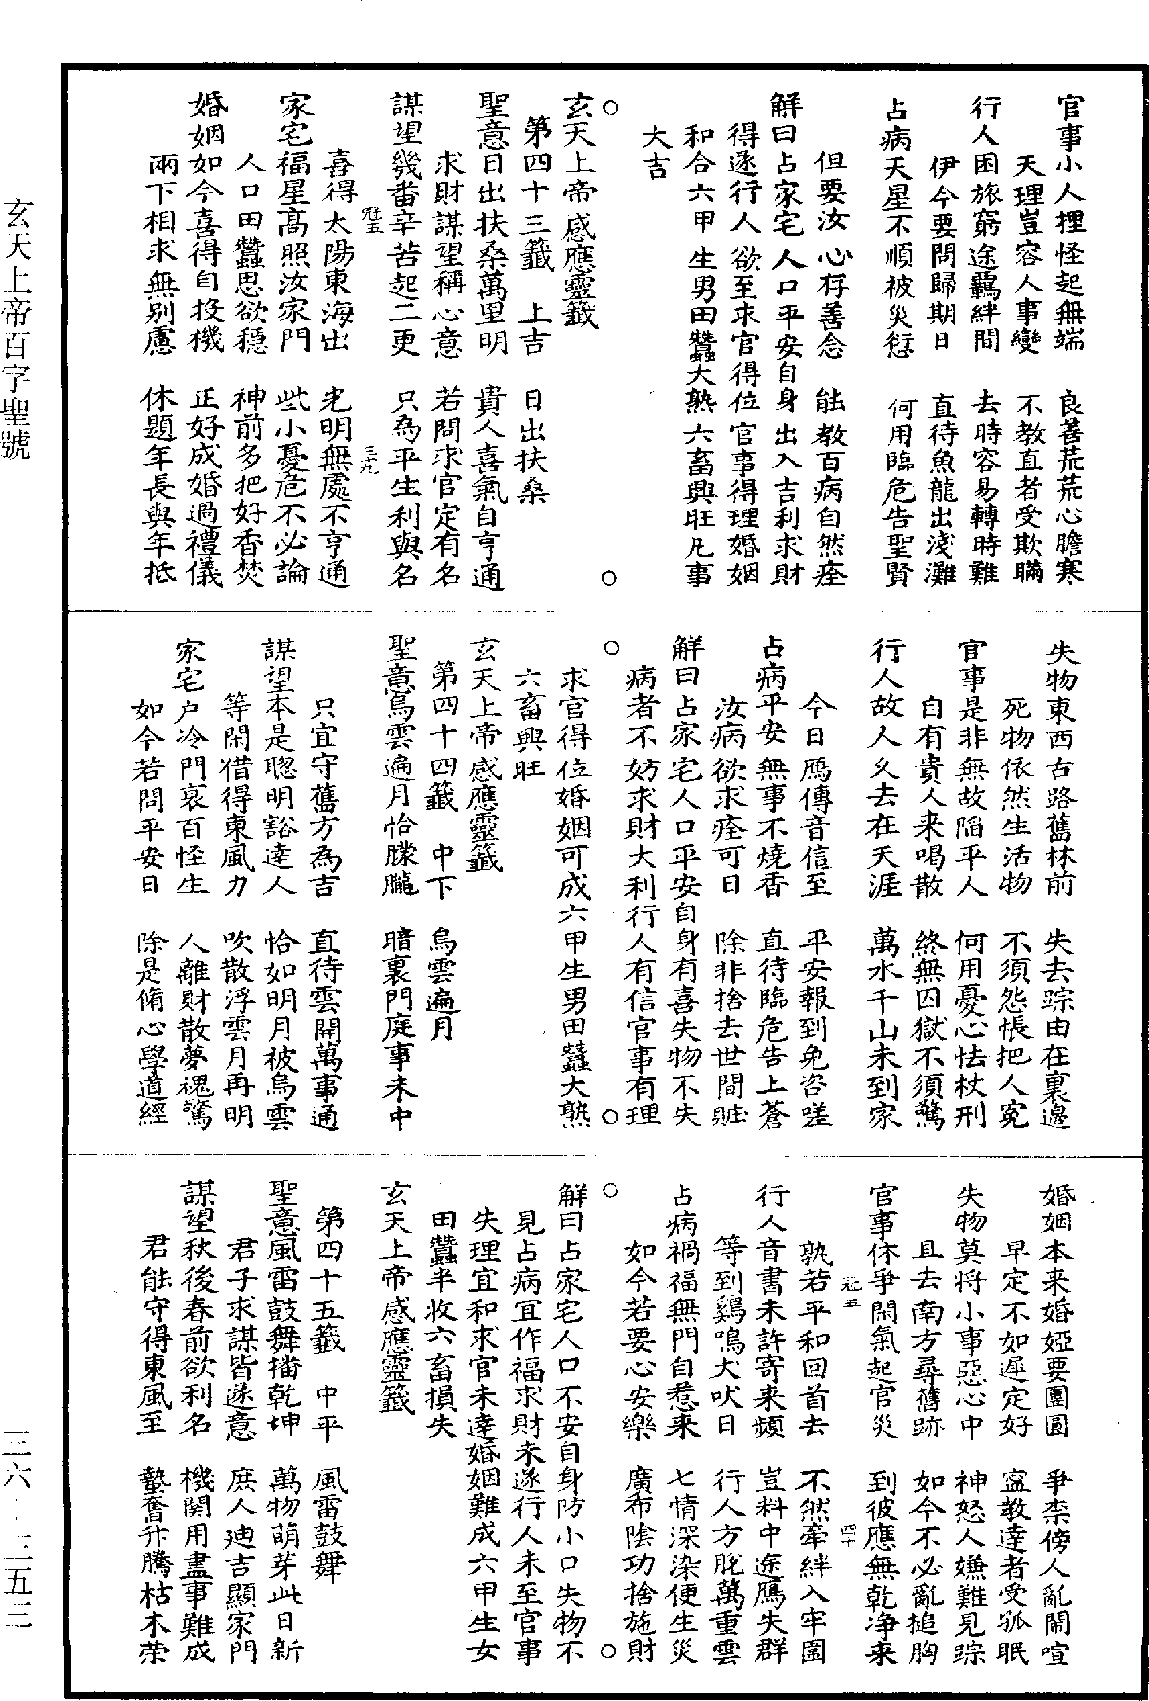 官事小人捏怪起無端　良善荒荒心膽寒
天理豈容人事變　不教直者受欺瞞
行人困旅窮途羈絆間　去時容易轉時難
伊今要問歸期日　直待魚龍出淺灘
占病天星不順被災愆　何用臨危告聖賢
但要汝心存善念　能教百病自然痊
解曰占家宅人口平安自身出入吉利求財
得遂行人欲至求官得位官事得理婚姻
和合六甲生男田蠶大熟六畜興旺凡事
大吉
○　○
玄天上帝感應靈籤
第四十三籤　上吉　日出扶桑
聖意日出扶桑萬里明　貴人喜氣自亨通
求財謀望稱心意　若問求官定有名
謀望幾番辛苦起二更　只為平生利與名
卷五　三十九
喜得太陽東海出　光明無處不亨通
家宅福星高照汝家門　些小憂危不必論
人口田蠶思欲穩　神前多把好香焚
婚姻如今喜得自投機　正好成婚過禮儀
兩下相求無別慮　休題年長與年抵
失物東西古路舊林前　失去踪由在裏邊
死物依然生活物　不須怨悵把人冤
官事是非無故陷平人　何用憂心怯杖刑
自有貴人來喝散　終無囚獄不須驚
行人故人久去在天涯　萬水千山未到家
今日鴈傳音信至　平安報到免咨嗟
占病平安無事不燒香　直待臨危告上蒼
汝病欲求痊可日　除非捨去世間賍
解曰占家宅人口平安自身有喜失物不失
病者不妨求財大利行人有信官事有理
○　○
求官得位婚姻可成六甲生男田蠶大熟
六畜興旺
玄天上帝感應靈籤
第四十四籤　中下　烏雲遍月
聖意烏雲遍月恰朦朧　暗裏門庭事未中
只宜守舊方為吉　直待雲開萬事通
謀望本是聰明豁達人　恰如明月被烏雲
等閑借得東風力　吹散浮雲月再明
家宅户冷門衰百怪生　人離財散夢魂驚
如今若問平安日　除是脩心學道經
婚姻本來婚婭要團圓　爭柰傍人亂鬧喧
早定不如遲定好　寧教達者受孤眠
失物莫將小事惡心中　神怒人嫌難見踪
且去南方尋舊跡　如今不必亂搥胸
官事休爭閑氣起官災　到彼應無乾淨來
卷五　四十
孰若平和回首去　不然牽絆入牢圄
行人音書未許寄來頻　豈料中途鴈失群
等到鷄鳴犬吠日　行人方脫萬重雲
占病禍福無門自惹來　七情深染便生災
如今若要心安樂　廣布陰功捨施財
○　○
解曰占家宅人口不安自身防小口失物不
見占病宜作福求財未遂行人未至官事
失理宜和求官未達婚姻難成六甲生女
田蠶半收六畜損失
玄天上帝感應靈籤
第四十五籤　中平　風雷鼓舞
聖意風雷鼓舞播乾坤　萬物萌芽此日新
君子求謀皆遂意　庶人迪吉顯家門
謀望秋後春前欲利名　機關用盡事難成
君能守得東風至　蟄奮升騰枯木榮
玄天上帝百字聖號
三六·三五三